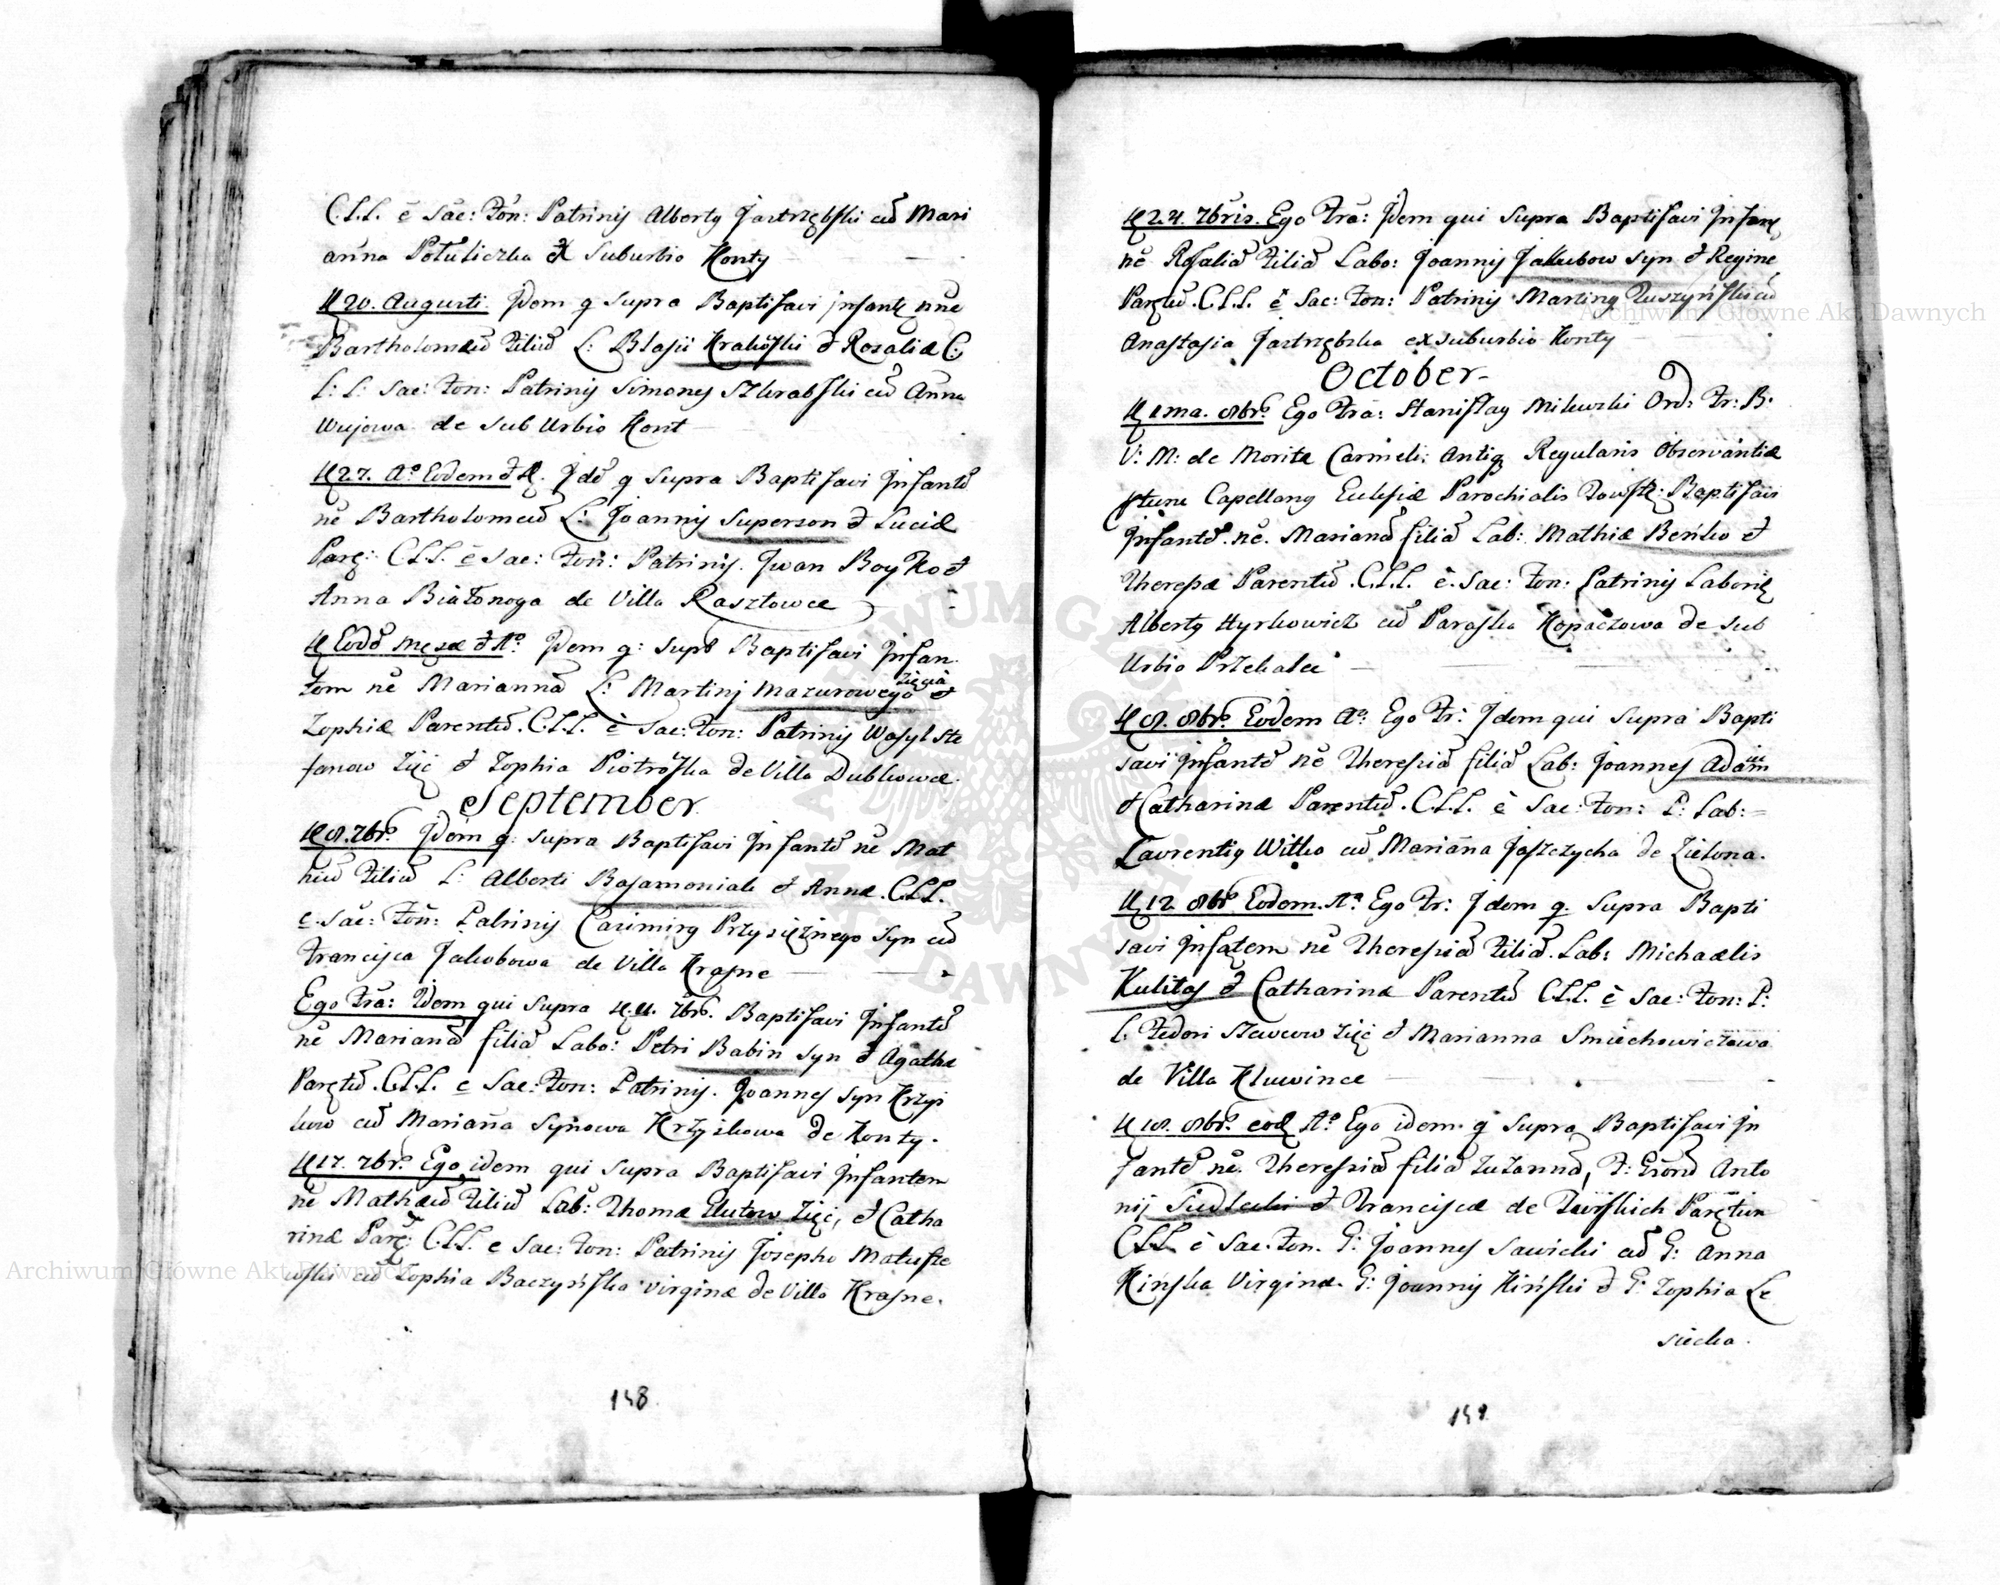 C.L.L. ē Sac: Fon: Patrinis Alberty Jastrzębski cū Mari
anna Potuliczka ex Suburbio Konty
D 20. Augusti. Idem q Supra Baptisavi infantē nne
Bartholomæū Filiū L: Blasii Krakoski et Rosaliæ C:
L: L: Sac: Fon: Patrinis Simones Szkrabski cū Anna
Wujowa de Sub Urbio Kont
D 27. Aº Eodem et M. Idē q Supra Baptisavi Infantē
nē Bartholomeū L: Joannis Superson et Luciæ
Parē: C.L.L. ē Sac: Fon: Patrinis. Iwan Boyko et
Anna Białonoga de Villa Rasztowce
D Eodē Mense et Aº. Idem q: Supr Baptisavi Infan
tem nē Mariannā L: Martini Mazurowego Zięcia et
Zophiæ Parentū. C.L.L. ē Sac: Fon: Patrinis Wasyl Ste
fanow Zięć et Zophia Piotroska de Villa Dubkowce.
September
D 8. 7brº Idem q: Supra Baptisavi Infantē nē Mat
heū Filiū L: Alberti Basamoniak et Annæ. C.L.L.
ē. Sac: Fon: Patrinis Casimirq Przysiężnego Syn cū
Francisca Jakobowa de Villa Krasne
Ego Fra: Idem qui Supra D. 11. 7brº. Baptisavi Infantē
nē Marianā filiā Labo: Petri Babin Syn et Agathæ
Parētū. C.L.L. ē Sac: Fon: Patrinis. Joannes Syn Krzys
kow cū Marianna Synowa Krzyskowa de Konty.
D 17. 7brº Ego idem qui Supra Baptisavi Infantem
nē Mathæū Filiū Lab: Thomæ Elutow Zięć, et Catha
rinæ Parē: C.L.L. e Sac: Fon: Patrinis Josepho Matusze
wski cū Zophia Baczyńska virginæ de Villa Krasne.
148
D 24. 7bris. Ego Fra: Idem qui Supra Baptisavi Infantē
nē Rosaliā Filiā Labo: Joannis Jakubow Syn et Reginæ
Parētū. C.L.L. ē Sac: Fon: Patrinis Martinq Ruszyński cū
Anastasia Jastrzębska ex suburbio Konty
October
D 1ma. 8brº. Ego Fra: Stanislaq Milewski Ord: Fr: B.
V: M: de Monte Carmeli: Antiq Regularis Observantiæ
pttunc Capellanq Ecclesiæ Parochialis Towste: Baptisavi
Infantē. nē. Marianā filiā Lab: Mathiæ Beńko et
Theresæ Parentū. C.L.L. ē. Sac: Fon: Patrinis Laborē
Alberty Hyrkowicz cū Paraska Kopaczowa de Sub
Urbio Przekalec
D 8. 8brº. Eodem Aº. Ego Fr: Idem qui Supra Bapti
savi Infantē nē Theresiā filiā Lab: Joannes Adam
et Catharinæ Parentū. C.L.L. ē Sac: Fon: P: Lab:
Laurentiq Witko cū Marianna Jaszczycha de Zielona.
D 12. 8brº Eodem. Aº Ego Fr: Idem q. Supra Bapti
savi Infatem nē Theresiā Filiā. Lab: Michaelis
Kulitas et Catharinæ Parentū C.L.L. ē Sac: Fon: P:
L. Fedori Szewcow Zięć et Marianna Smiechowiczowa
de Villa Kluwince
D 18. 8brº. eodē Aº Ego idem. q Supra Baptisavi In
fantē nē. Theresiā filiā Zuzannā, F: Grōd Anto
nij Siedlecki et Franciscæ de Zurskich Parētum
C.L.L. ē Sac. Fon. G: Joannes Sawicki cū G: Anna
Kińska Virginæ. G: Joannis Kiński et G: Zophia Le
siecka.
149
Archiwum Główne Akt Dawnych
Archiwum Główne Akt Dawnych